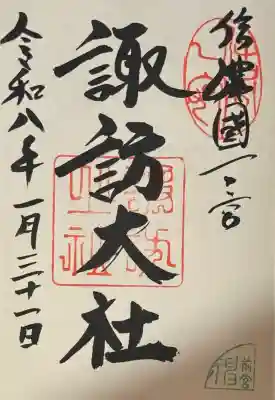 信濃國一之宮
諏訪大社
令和八年一月三十一日
前宮